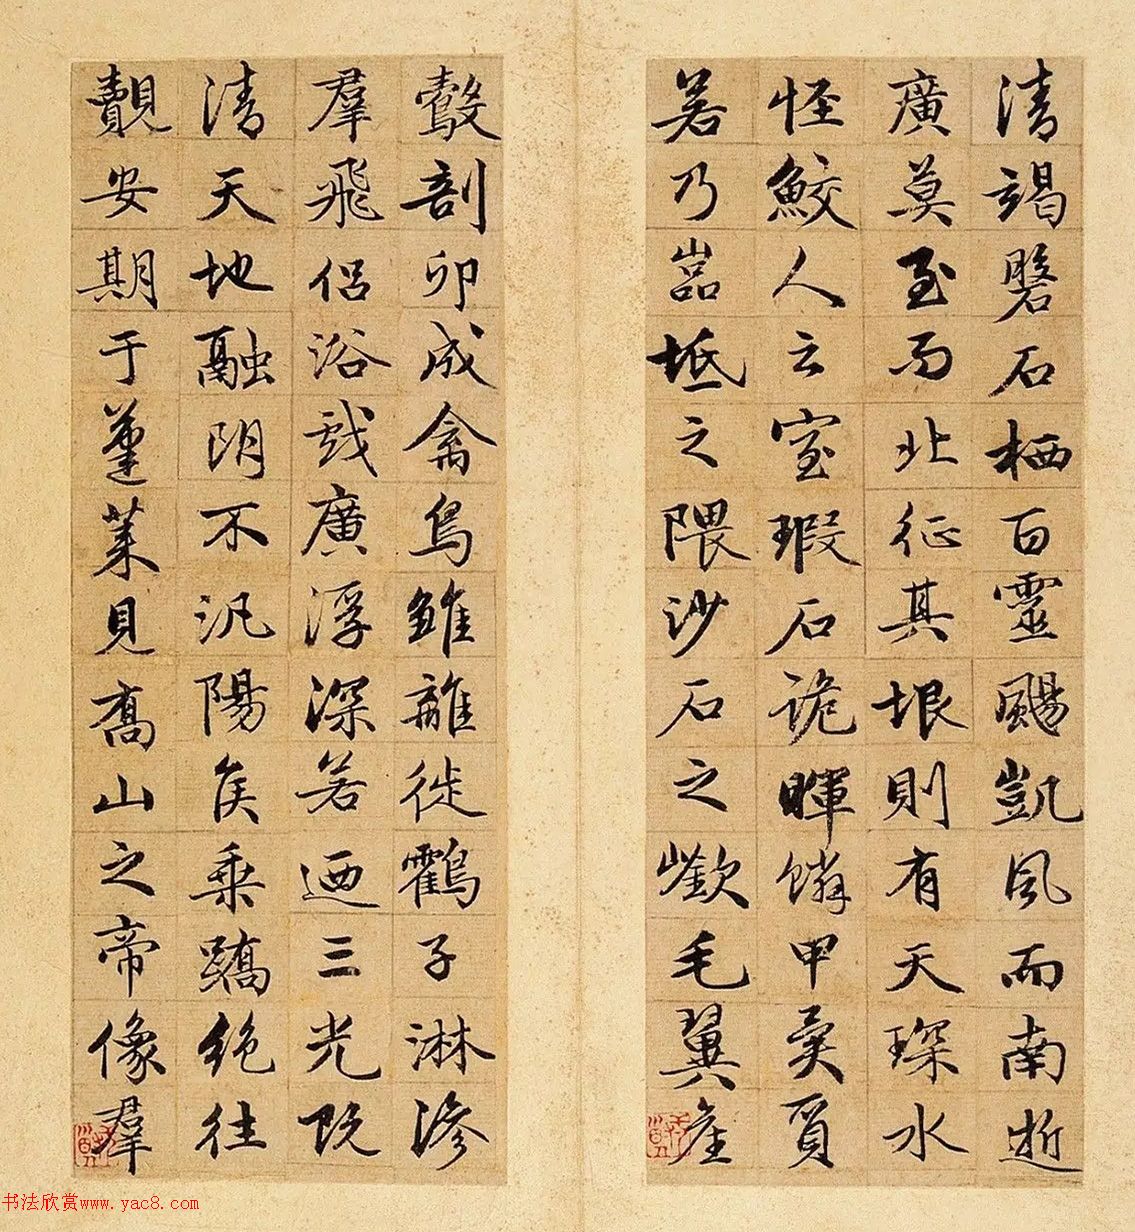 清竭磐石栖百靈颺凱風而南逝
廣莫至而北征其垠則有天琛水
怪鮫人云室瑕石詭暉鱗甲異質
若乃嵓坻之隈沙石之嶔毛翼產
鷇剖卵成禽鳧雛離徙鶴子淋滲
羣飛侶浴戲廣浮深若迺三光既
清天地融朗不汎陽侯乘蹻絕往
覿安期于蓬萊見喬山之帝像羣
书法欣赏www.yac8.com